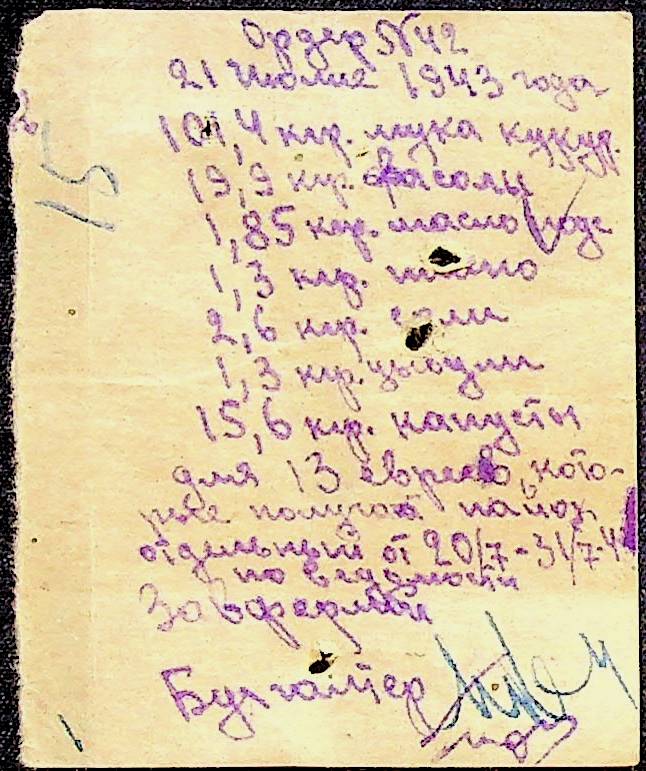 Ордер №42
21 Июлие 1943 года
101,4 кгр. мука кукур.
19,9 кгр. фасолы
1,85 кгр. масло
1,3 кгр.
2,6 кгр. соли
1,3 кгр. цыбули
15,6 кгр. капусты
для 13 евреев, кото-
рые получат паиок
отдельный от 20/7-31/7-4
по ведомости
Зав фермы
Бухгалтер
15